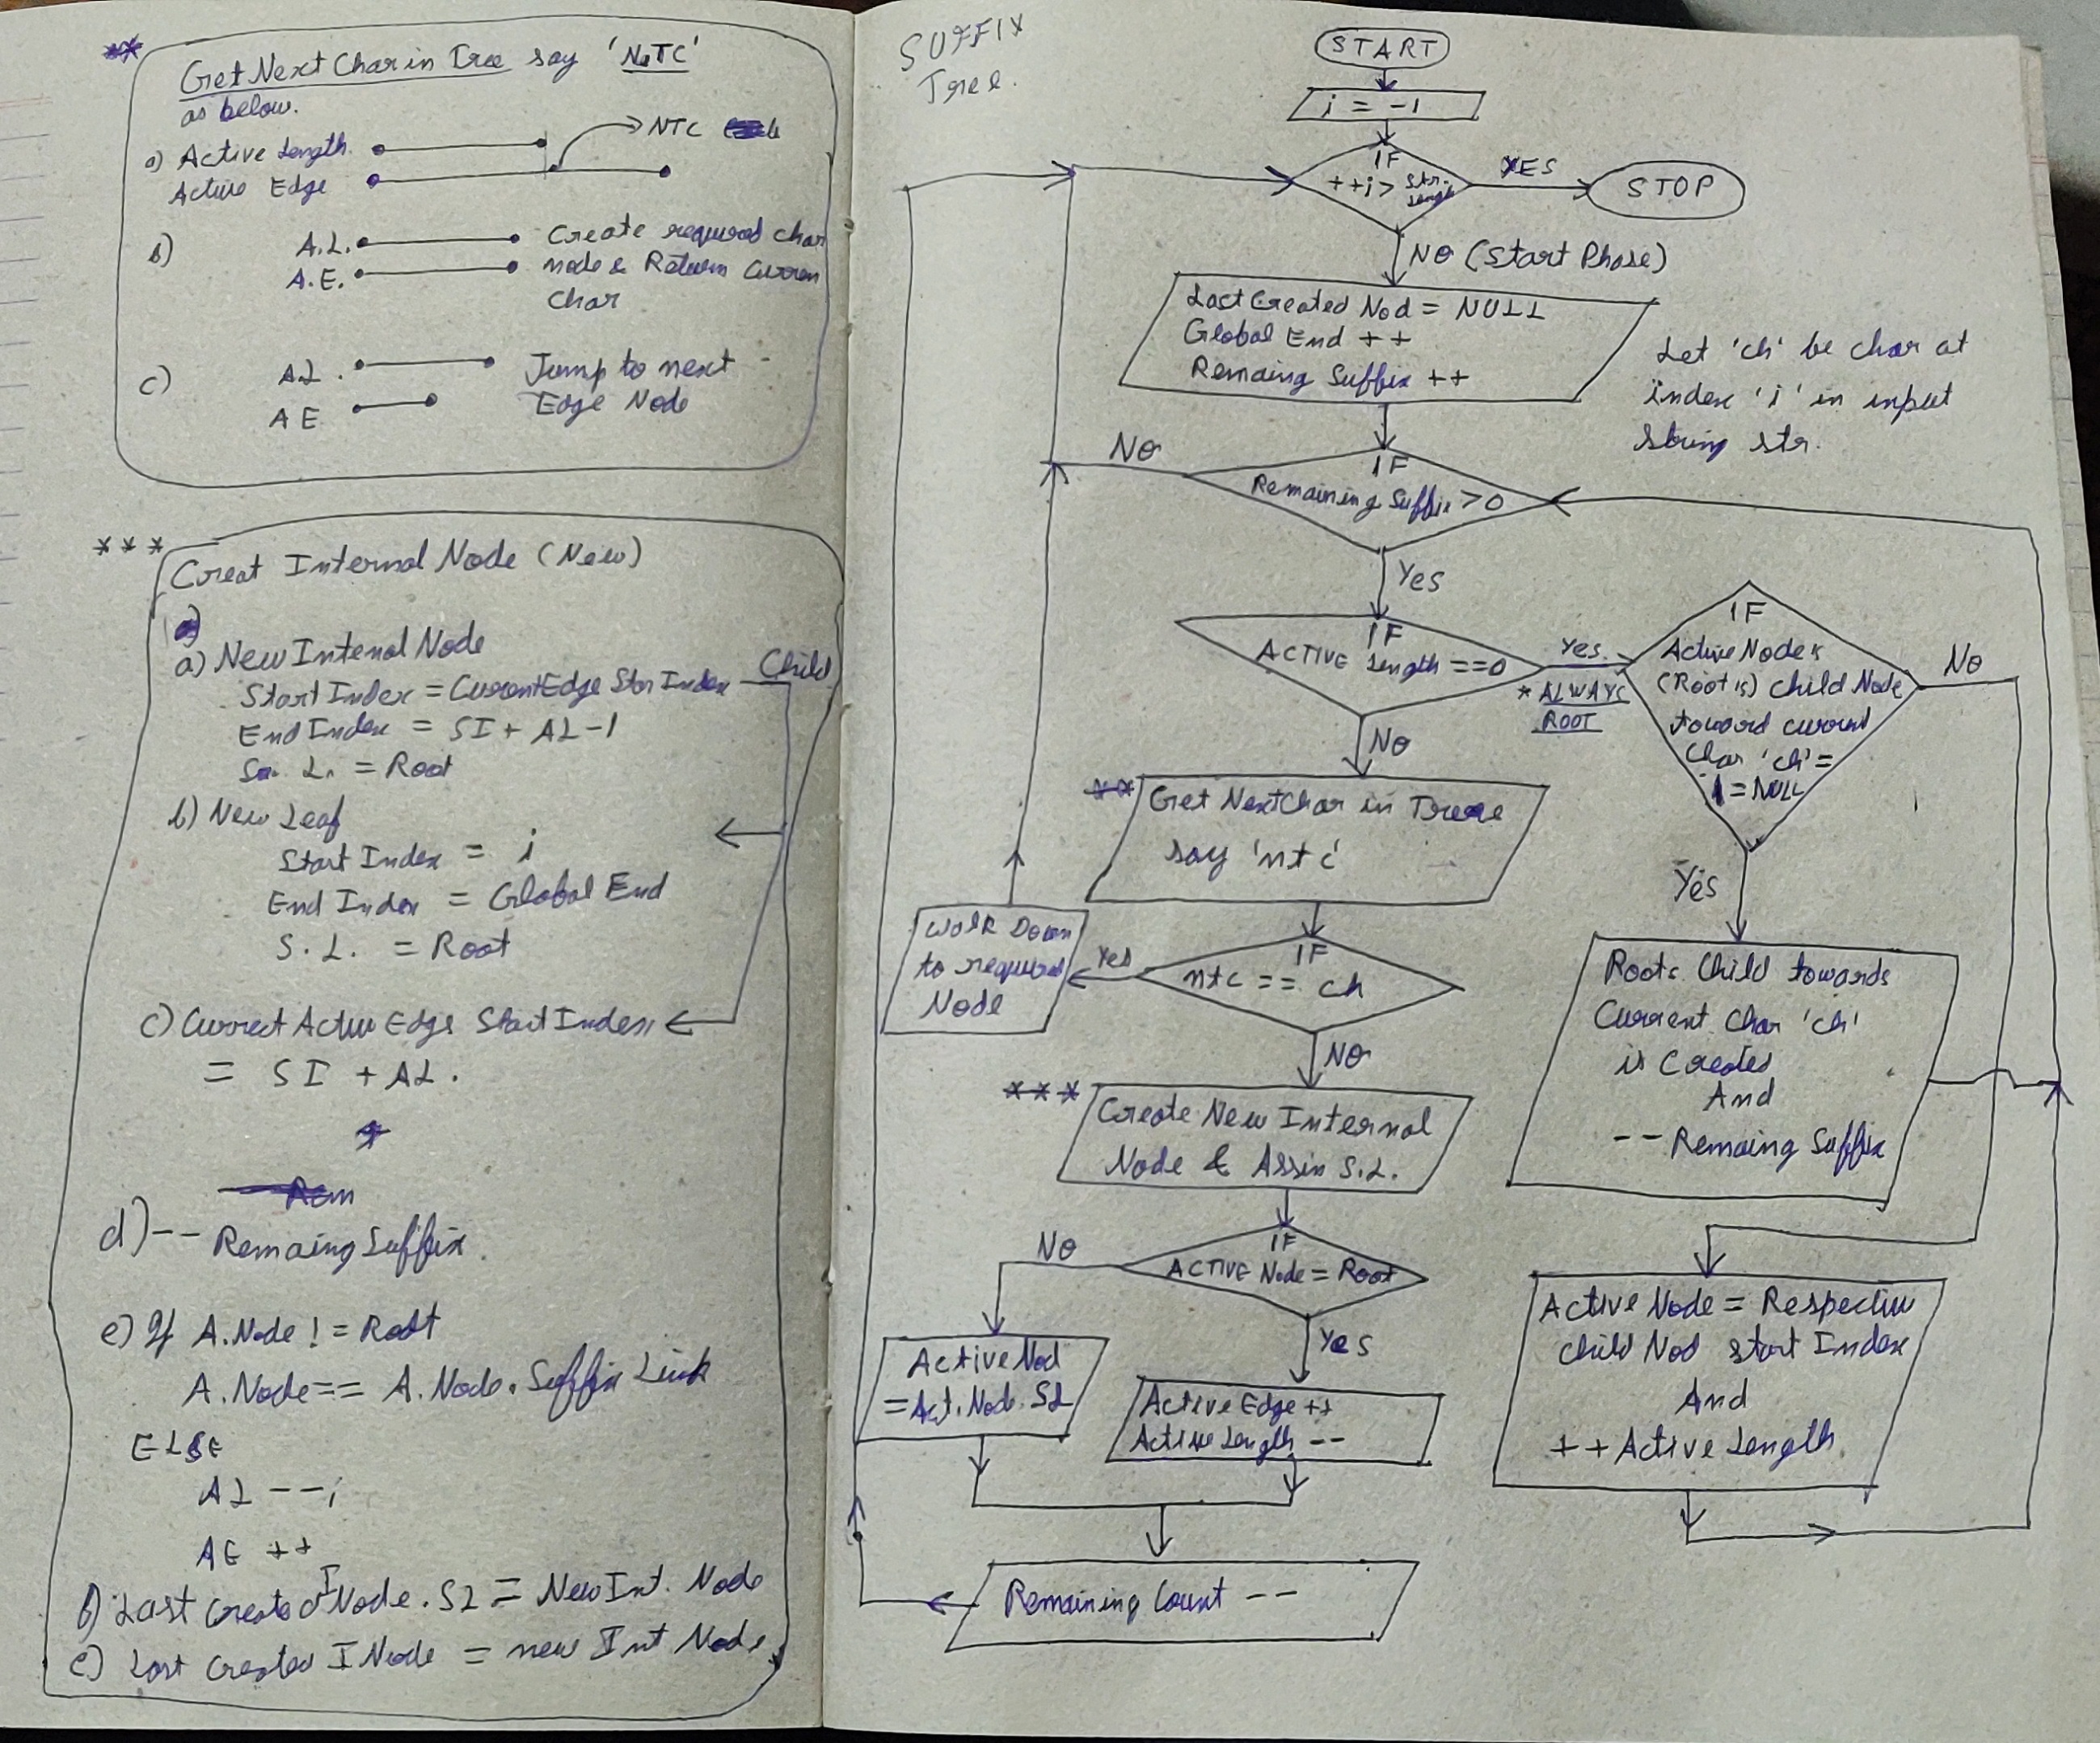 **
Get Next Char in Tree say 'NTC'
as below.
a) Active Length
NTC
Active Edge
b) A.L. Create required char
A.E. node & Return Curren
char
c) AL Jump to next
AE Edge Node
***
Creat Internal Node (New)
a) New Intenal Node
Start Index = Current Edge Star Index
Child
End Index = SI + AL - 1
S. L. = Root
b) New Leaf
Start Index = i
End Index = Global End
S. L. = Root
c) Currect Active Edge Start Index
= SI + AL.
Rem
d) -- Remaing Suffix.
e) If A.Node != Root
A.Node == A.Node. Suffix Link
ELSE
AL --;
AE ++
f) Last Created INode. SL = New Int. Node
e) Last Created I Node = new Int Node
SUFFIX
Tree.
START
i = -1
IF
++i > Str. Length
YES
STOP
NO (Start Phase)
Last Created Nod = NULL
Global End ++
Remaing Suffix ++
Let 'ch' be char at
index 'i' in input
string str.
NO
IF
Remaining Suffix > 0
Yes
IF
ACTIVE Length == 0
Yes
* ALWAYS
ROOT
IF
Active Node's
(Root is) child Node
toward current
Char 'ch' =
! = NULL
No
NO
**
Get NextChar in Treee
say 'ntc'
Yes
Walk Down
to required
Node
Yes
IF
ntc == ch
Roots Child towards
Current Char 'ch'
is Created
And
-- Remaing Suffix
NO
***
Create New Internal
Node & Assin S.L.
NO
IF
ACTIVE Node = Root
Yes
Active Nod
= Act. Node. SL
Active Edge ++
Active Length --
Active Node = Respective
child Nod start Index
And
++ Active Length
Remaining Count --